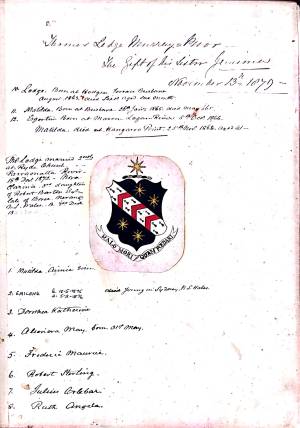 Thomas Lodge Murray-Prior
The Gift of his Sister Jemima
November 13th 1879
10. Lodge. Born at Hodgson Terrace Brisbane
August 1863. died Sept
11. Matilda. Born at Brisbane 26th 1865. died
12. Egerton Born at Maroon Logan River 5th Oct 1866.
Matilda. died at Kangaroo Point. 1868. Aged 41
T. Lodge married 2ndly
at Hyde Church
River
18th Nov 1872 - Nora
Clarina. 3rd daughter
of Robert Barton Esq
late of Boree
N.S. Wales. &
MALO MORI QUAM FOEDARI
1. Matilda Annie born
2. died young in Sydney N.S. Wales
3. Dorothea Katherine
4. Alienora May. born 31st May.
5. Frederic Maurice.
6. Robert Sterling.
7. Julius Orlebar.
8. Ruth Angela.